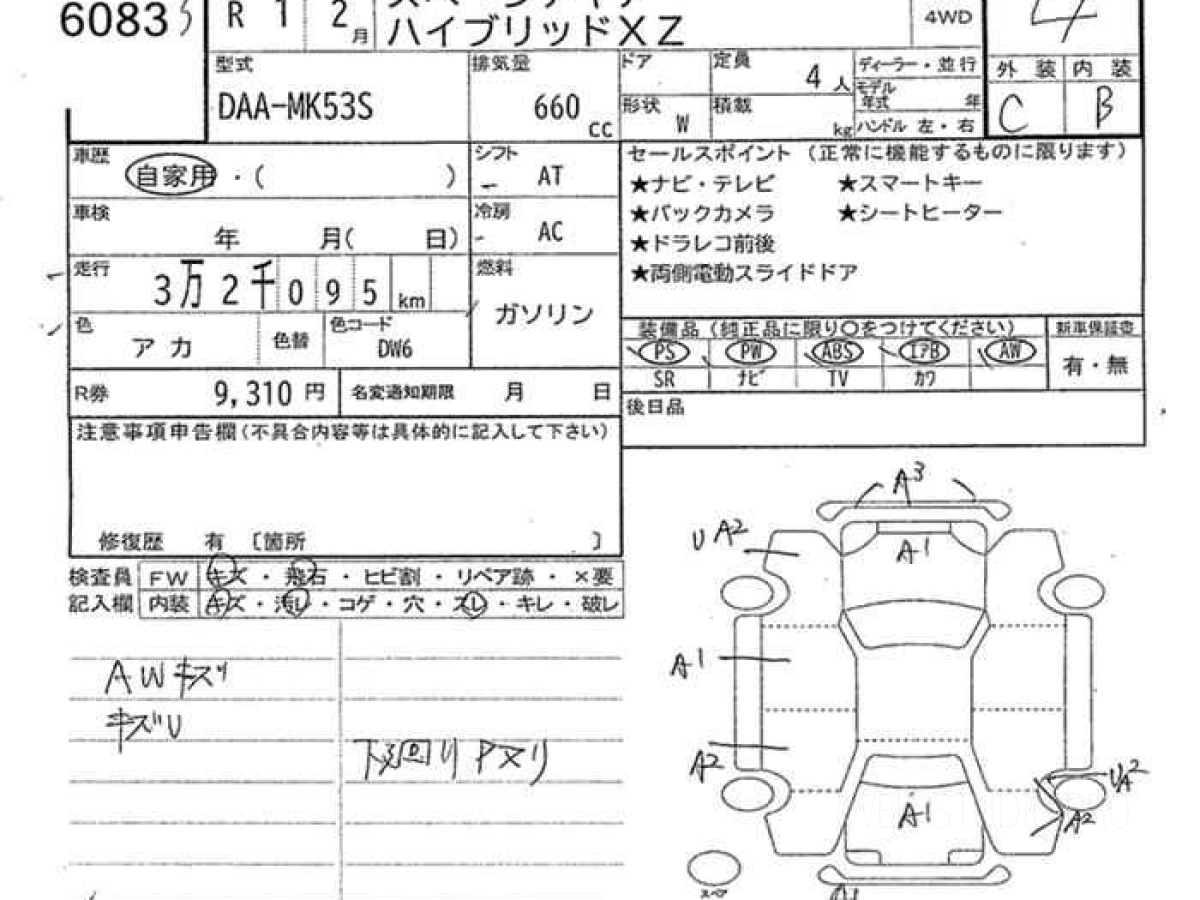 6083
R 1 2月
ハイブリッドXZ
4WD
4
型式
DAA-MK53S
排気量
660 cc
ドア
定員
4人
形状
W
積載
kg
ディーラー・並行
モデル年式 年
ハンドル 左・右
外装 内装
C B
車歴
自家用・( )
シフト
AT
車検
年 月( 日)
冷房
AC
走行
3万2千095km
燃料
ガソリン
色
アカ
色替
色コード
DW6
R券
9,310円
名変通知期限 月 日
セールスポイント (正常に機能するものに限ります)
★ナビ・テレビ ★スマートキー
★バックカメラ ★シートヒーター
★ドラレコ前後
★両側電動スライドドア
装備品(純正品に限り〇をつけてください) 新車保証書
PS PW ABS エアB AW
SR ナビ TV カワ
有・無
後日品
注意事項申告欄(不具合内容等は具体的に記入して下さい)
修復歴 有 [箇所 ]
検査員 FW キズ・飛石・ヒビ割・リペア跡・×要
記入欄 内装 キズ・汚レ・コゲ・穴・スレ・キレ・破レ
AWキズ
キズU
下回り Pヌリ
A3
UA2
A1
A1
A2
UA2
A2
A1
スペア